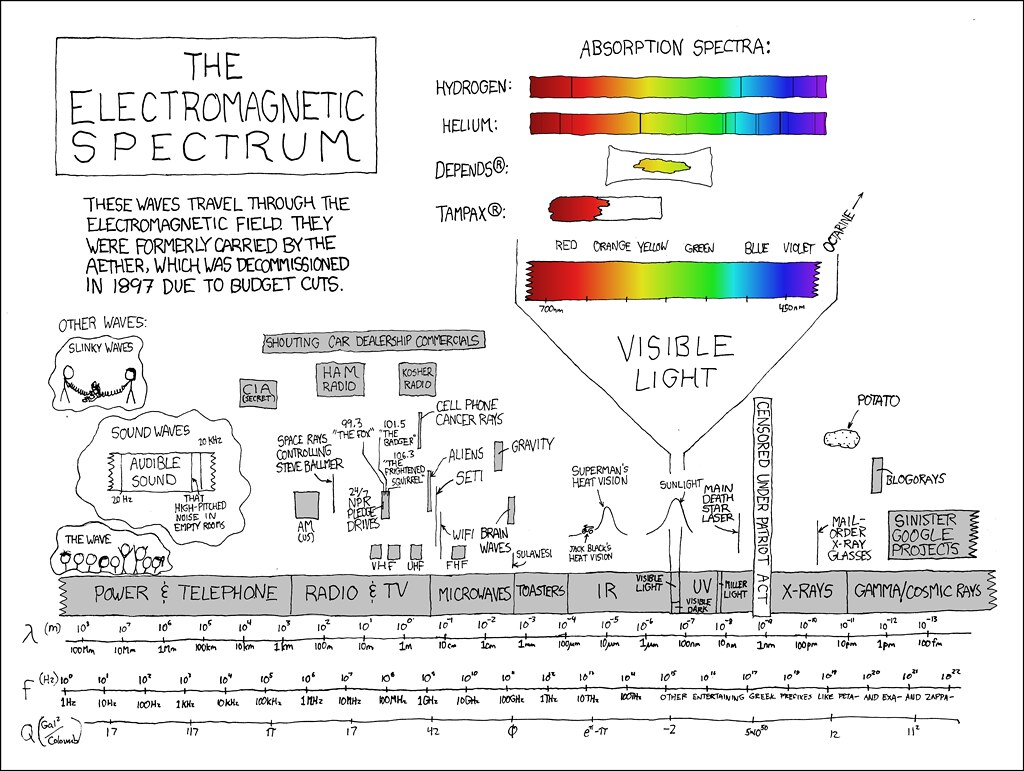 THE
ELECTROMAGNETIC
SPECTRUM
THESE WAVES TRAVEL THROUGH THE
ELECTROMAGNETIC FIELD. THEY
WERE FORMERLY CARRIED BY THE
AETHER, WHICH WAS DECOMMISSIONED
IN 1897 DUE TO BUDGET CUTS.
ABSORPTION SPECTRA:
HYDROGEN:
HELIUM:
DEPENDS®:
TAMPAX®:
RED ORANGE YELLOW GREEN BLUE VIOLET OCTARINE
700nm 450nm
VISIBLE
LIGHT
OTHER WAVES:
SLINKY WAVES
SOUND WAVES
20 KHz
AUDIBLE
SOUND
20 Hz
THAT
HIGH-PITCHED
NOISE IN
EMPTY ROOMS
THE WAVE
SHOUTING CAR DEALERSHIP COMMERCIALS
CIA
(SECRET)
HAM
RADIO
KOSHER
RADIO
CELL PHONE
CANCER RAYS
99.3
"THE FOX"
101.5
"THE
BADGER"
106.3
"THE
FRIGHTENED
SQUIRREL"
SPACE RAYS
CONTROLLING
STEVE BALLMER
ALIENS
SETI
GRAVITY
AM
(US)
24/7
NPR
PLEDGE
DRIVES
WIFI
BRAIN
WAVES
SULAWESI
VHF UHF FHF
SUPERMAN'S
HEAT VISION
JACK BLACK'S
HEAT VISION
SUNLIGHT
MAIN
DEATH
STAR
LASER
CENSORED UNDER PATRIOT ACT
POTATO
BLOGORAYS
MAIL-
ORDER
X-RAY
GLASSES
SINISTER
GOOGLE
PROJECTS
POWER & TELEPHONE
RADIO & TV
MICROWAVES
TOASTERS
IR
VISIBLE
LIGHT
VISIBLE
DARK
UV
MILLER
LIGHT
X-RAYS
GAMMA/COSMIC RAYS
λ (m) 10⁸ 10⁷ 10⁶ 10⁵ 10⁴ 10³ 10² 10¹ 10⁰ 10⁻¹ 10⁻² 10⁻³ 10⁻⁴ 10⁻⁵ 10⁻⁶ 10⁻⁷ 10⁻⁸ 10⁻⁹ 10⁻¹⁰ 10⁻¹¹ 10⁻¹² 10⁻¹³
100Mm 10Mm 1Mm 100km 10km 1km 100m 10m 1m 10cm 1cm 1mm 100μm 10μm 1μm 100nm 10nm 1nm 100pm 10pm 1pm 100fm
f (Hz) 10⁰ 10¹ 10² 10³ 10⁴ 10⁵ 10⁶ 10⁷ 10⁸ 10⁹ 10¹⁰ 10¹¹ 10¹² 10¹³ 10¹⁴ 10¹⁵ 10¹⁶ 10¹⁷ 10¹⁸ 10¹⁹ 10²⁰ 10²¹ 10²²
1Hz 10Hz 100Hz 1KHz 10KHz 100KHz 1MHz 10MHz 100MHz 1GHz 10GHz 100GHz 1THz 10THz 100THz OTHER ENTERTAINING GREEK PREFIXES LIKE PETA- AND EXA- AND ZAPPA-
Q (Gal²/Coloumb) 17 117 π 17 42 φ e^π-π -2 540⁵⁰ 12 11²